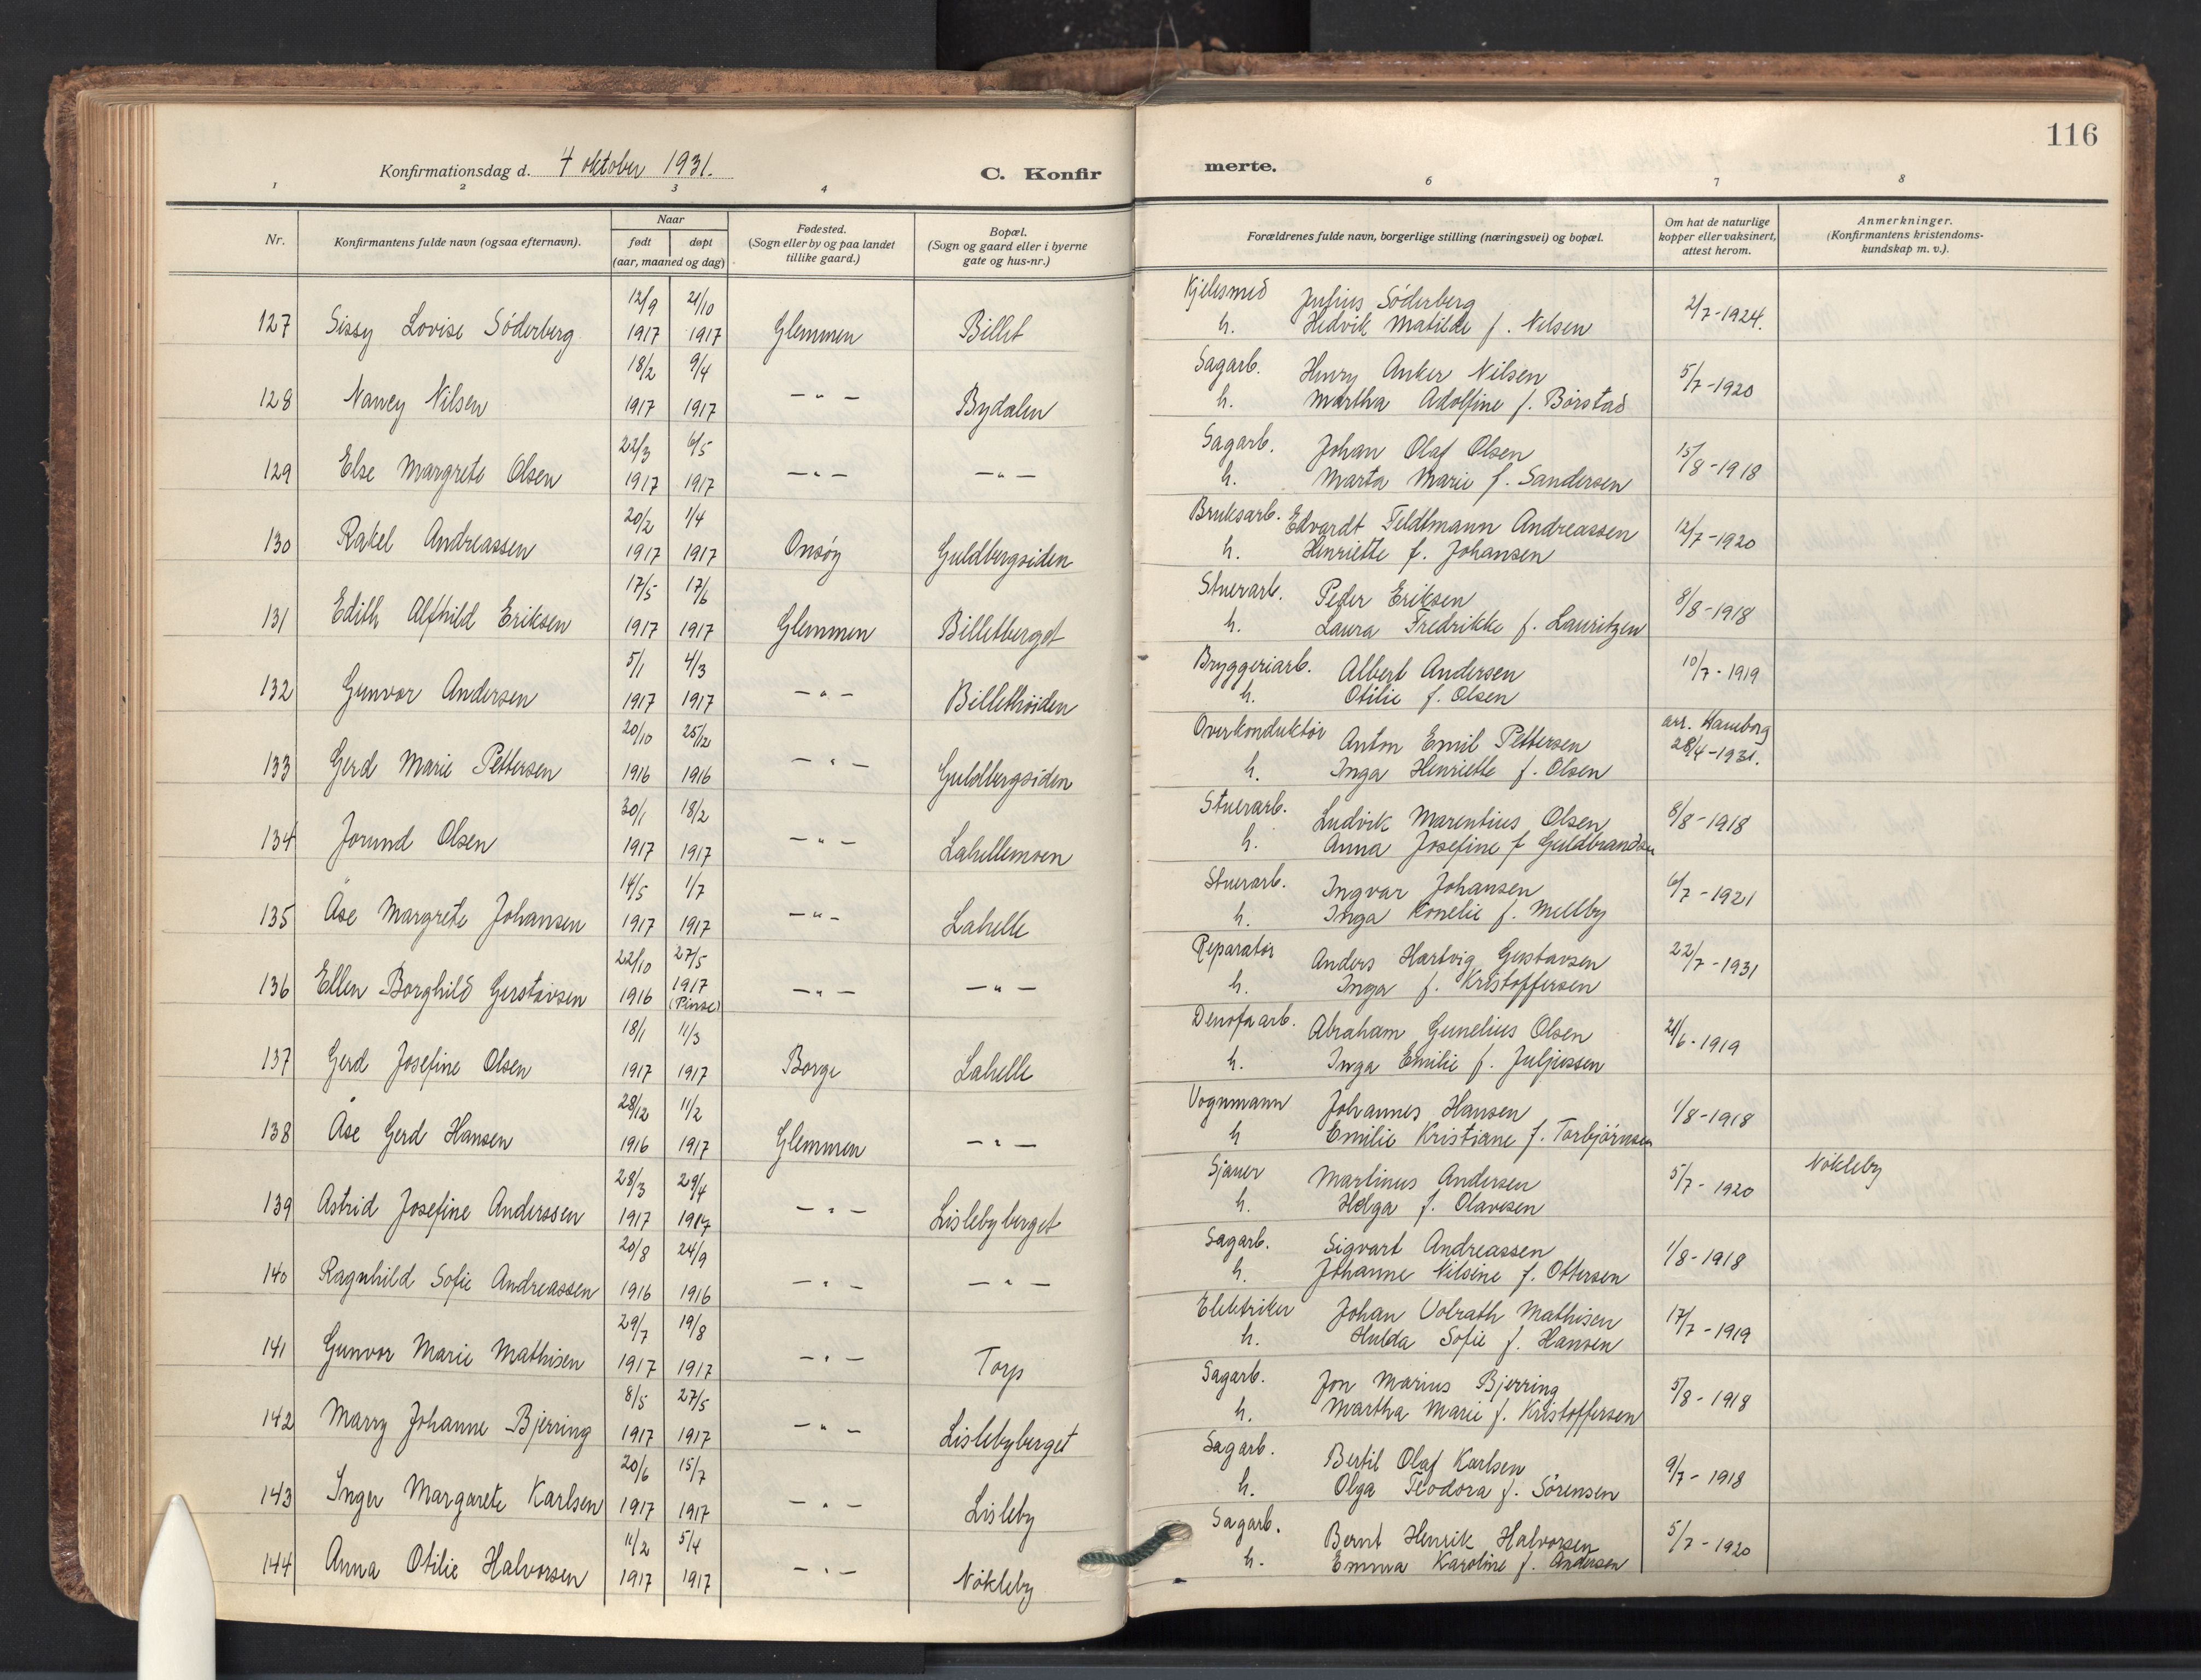 116
Konfirmationsdag d. 4 oktober 1931. C. Konfirmerte.
1 2 3 4 6 7 8
Nr. Konfirmantens fulde navn (ogsaa efternavn). Naar født døpt (aar, maaned og dag) Fødested. (Sogn eller by og paa landet tillike gaard.) Bopæl. (Sogn og gaard eller i byerne gate og hus-nr.) Forældrenes fulde navn, borgerlige stilling (næringsvei) og bopæl. Om hat de naturlige kopper eller vaksinert, attest herom. Anmerkninger. (Konfirmantens kristendomskundskap m. v.).
127 Sissy Lovise Söderberg 12/9 1917 21/10 1917 Glemmen Billet Kjelesmed Julius Söderberg
h. Hedvik Matilde f. Nilsen 2/7-1924.
128 Nancy Nilsen 18/2 1917 9/4 1917 — " — Bydalen Sagarb. Henry Anker Nilsen
h. Martha Adolfine f. Börstad 5/7-1920
129 Else Margrete Olsen 22/3 1917 6/5 1917 — " — — " — Sagarb. Johan Olaf Olsen
h. Marta Marie f. Sandersen 15/8-1918
130 Rakel Andreassen 20/2 1917 1/4 1917 Onsöy Guldbergsiden Bruksarb. Edvardt Feldtmann Andreassen
h. Henriette f. Johansen 12/7-1920
131 Edith Alfhild Eriksen 17/5 1917 17/6 1917 Glemmen Billetberget Stuerarb. Peder Eriksen
h. Laura Fredrikke f. Lauritzen 8/8-1918
132 Gunvor Andersen 5/1 1917 4/3 1917 — " — Billethöiden Bryggeriarb. Albert Andersen
h. Otilie f. Olsen 10/7-1919
133 Gerd Marie Pettersen 20/10 1916 25/12 1916 — " — Guldbergsiden Overkonduktör Anton Emil Pettersen
h. Inga Henriette f. Olsen arr. 28/4-1931.
134 Jorund Olsen 30/1 1917 18/2 1917 — " — Lahellemoen Stuerarb. Ludvik Marentius Olsen
h. Anna Josefine f Guldbrandsen 8/8-1918
135 Åse Margrete Johansen 14/5 1917 1/7 1917 — " — Lahelle Stuerarb. Ingvar Johansen
h. Inga Konelie f. Mellby 6/7-1921
136 Ellen Borghild Gustavsen 22/10 1916 27/5 1917 (Pinse) — " — — " — Reparatör Anders Hartvig Gustavsen
h. Inga f. Kristoffersen 22/7-1931
137 Gerd Josefine Olsen 18/1 1917 11/3 1917 Borge Lahelle Denofaarb. Abraham Gunelius Olsen
h. Inga Emilie f. Juljussen 21/6-1919
138 Åse Gerd Hansen 28/12 1916 11/2 1917 Glemmen — " — Vognmann Johannes Hansen
h Emilie Kristiane f. Torbjörnsen 1/8-1918
139 Astrid Josefine Anderssen 28/3 1917 29/4 1917 — " — Lislebyberget Sjauer Martinus Andersen
h. Helga f. Olavesen 5/7-1920 Nökleby
140 Ragnhild Sofie Andreassen 20/8 1916 24/9 1916 — " — — " — Sagarb. Sigvart Andreassen
h. Johanne Nilsine f. Ottersen 1/8-1918
141 Gunvor Marie Mathisen 29/7 1917 19/8 1917 — " — Torp Elektriker Johan Volrath Mathisen
h. Hulda Sofie f. Hansen 17/7-1919
142 Marry Johanne Bjerring 8/5 1917 27/5 1917 — " — Lislebyberget Sagarb. Jon Marius Bjerring
h. Martha Marie f. Kristoffersen 5/8-1918
143 Inger Margarete Karlsen 20/6 1917 15/7 1917 — " — Lisleby Sagarb. Bertil Olaf Karlsen
h. Olga Teodora f. Sörensen 9/7-1918
144 Anna Otilie Halvorsen 11/2 1917 5/4 1917 — " — Nökleby Sagarb. Bernt Henrik Halvorsen
h. Emma Karoline f. Andersen 5/7-1920